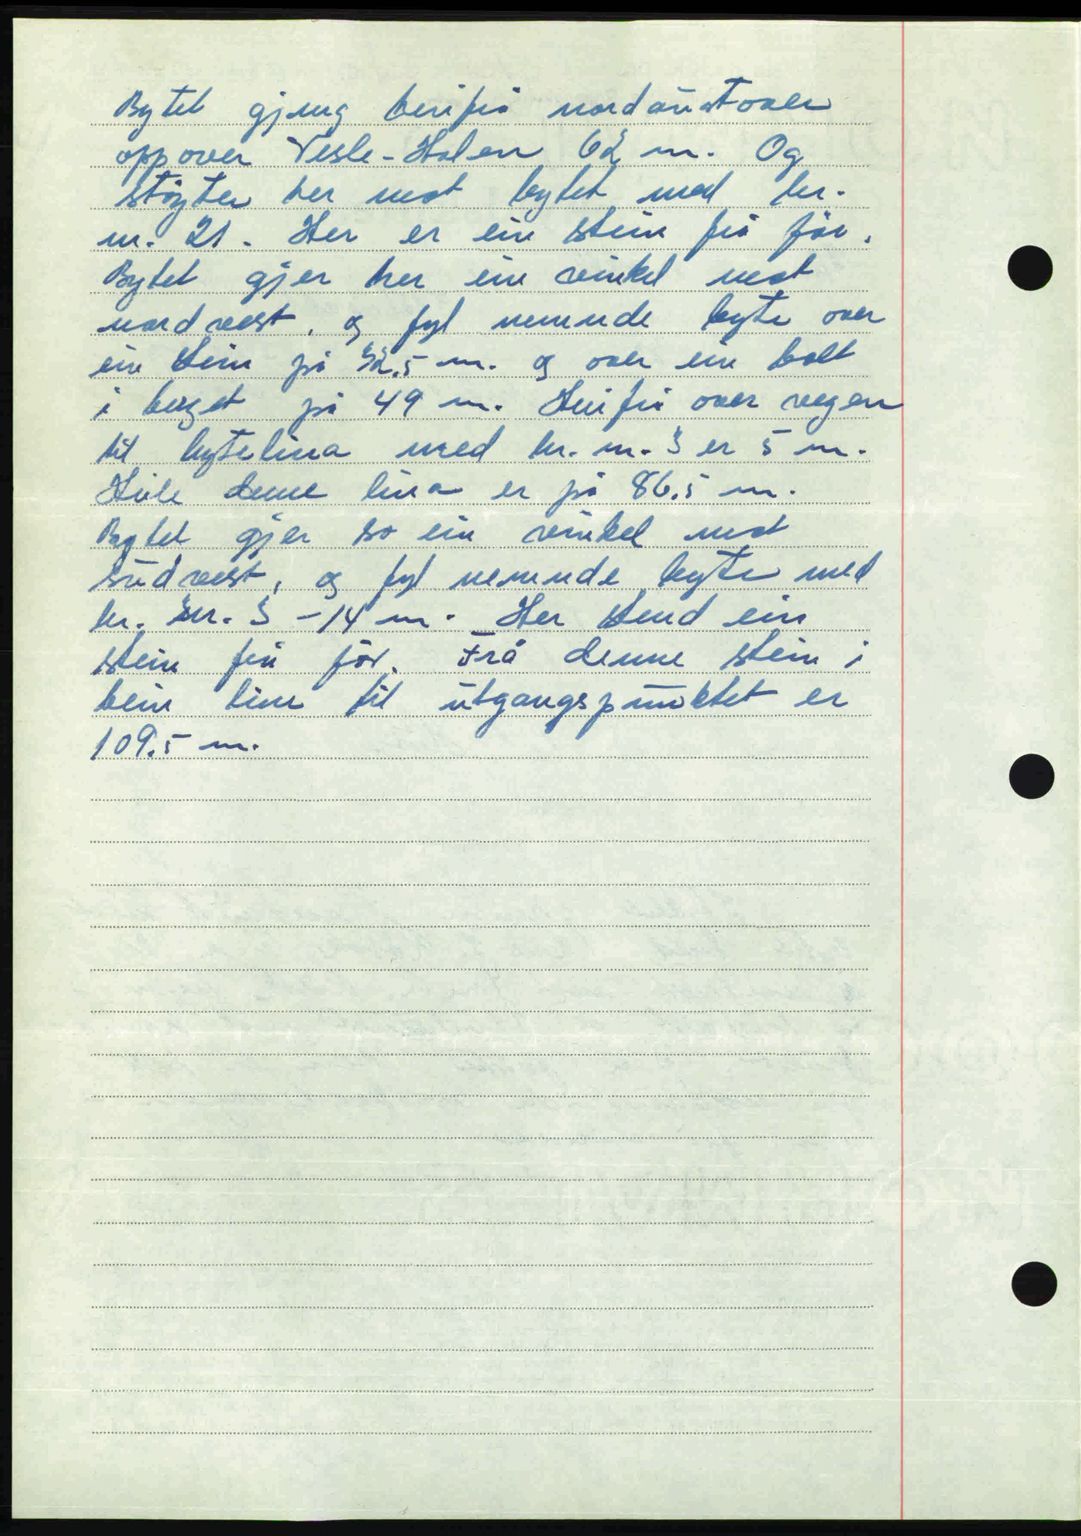 Bytet gjeng herifrå nordaustover
oppover Vesle-Holen 62 m. Og
støyter her mot bytet med br.
nr. 21. Her er ein stein frå för.
Bytet gjer her ein vinkel mot
nordvest, og fyl nemnde byte over
ein stein på 32.5 m. og over ein bolt
i berget på 49 m. Herifrå over vegen
til bytelina med br. nr. 3 er 5 m.
Heile denne lina er på 86.5 m.
Bytet gjer so ein vinkel mot
südvest, og fyl nemnde byte med
br. nr. 3 - 14 m. Her stend ein
stein frå för. Frå denne stein i
bein line til utgangspunktet er
109.5 m.